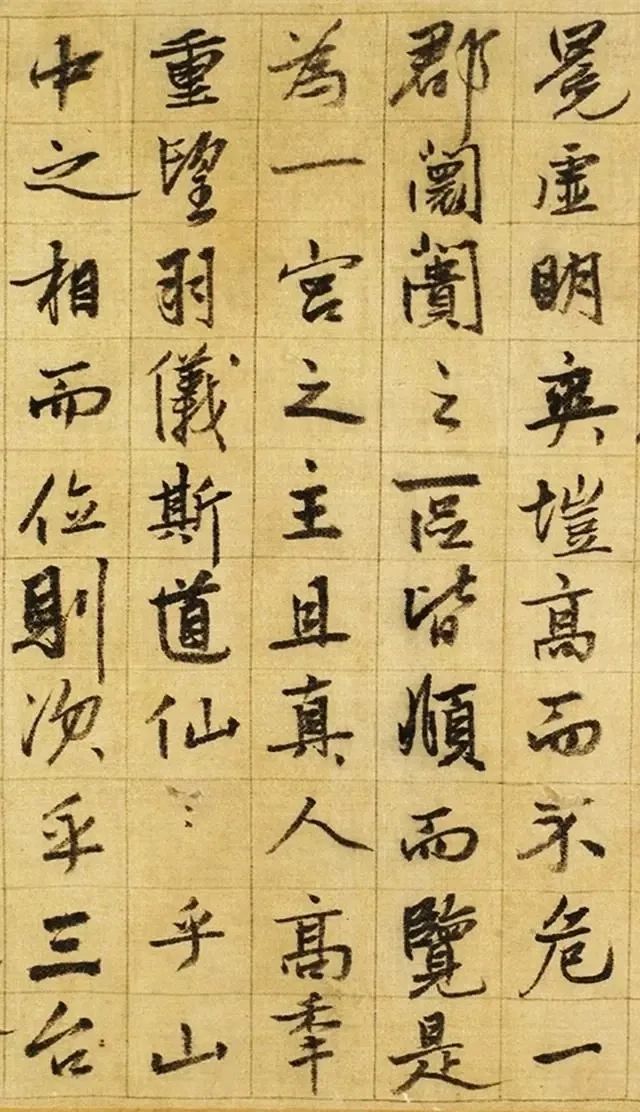 虛明爽塏高而不危一
郡闤闠之區皆順而覽是
為一宮之主且真人高
重望羽儀斯道仙〻乎山
中之相而位則次乎三台